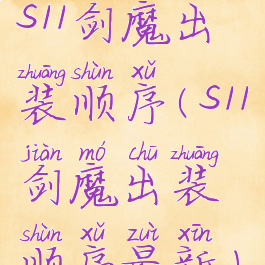 S11剑魔出
zhuāng shùn xǔ
装顺序(S11
jiàn mó chū zhuāng
剑魔出装
shùn xǔ zuì xīn
顺序最新)